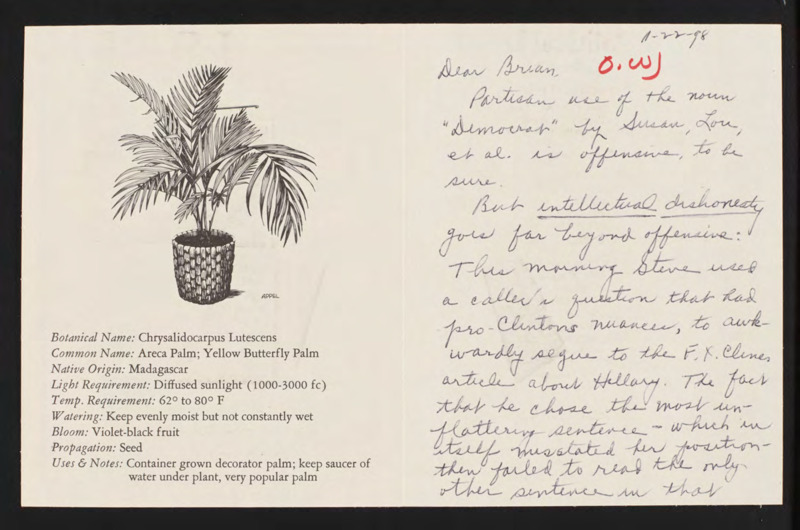 APPEL
Botanical Name: Chrysalidocarpus Lutescens
Common Name: Areca Palm; Yellow Butterfly Palm
Native Origin: Madagascar
Light Requirement: Diffused sunlight (1000-3000 fc)
Temp. Requirement: 62° to 80° F
Watering: Keep evenly moist but not constantly wet
Bloom: Violet-black fruit
Propagation: Seed
Uses & Notes: Container grown decorator palm; keep saucer of
water under plant, very popular palm
1-22-98
Dear Brian,
Partisan use of the noun
"Democrat" by Susan, Lou,
et al. is offensive, to be
sure.
But intellectual dishonesty
goes far beyond offensive:
This morning Steve used
a caller's question that had
pro-Clintons nuances, to awk-
wardly segue to the F.X. Clines
article about Hillary. The fact
that he chose the most un-
flattering sentence - which in
itself misstated her position -
then failed to read the only
other sentence in that